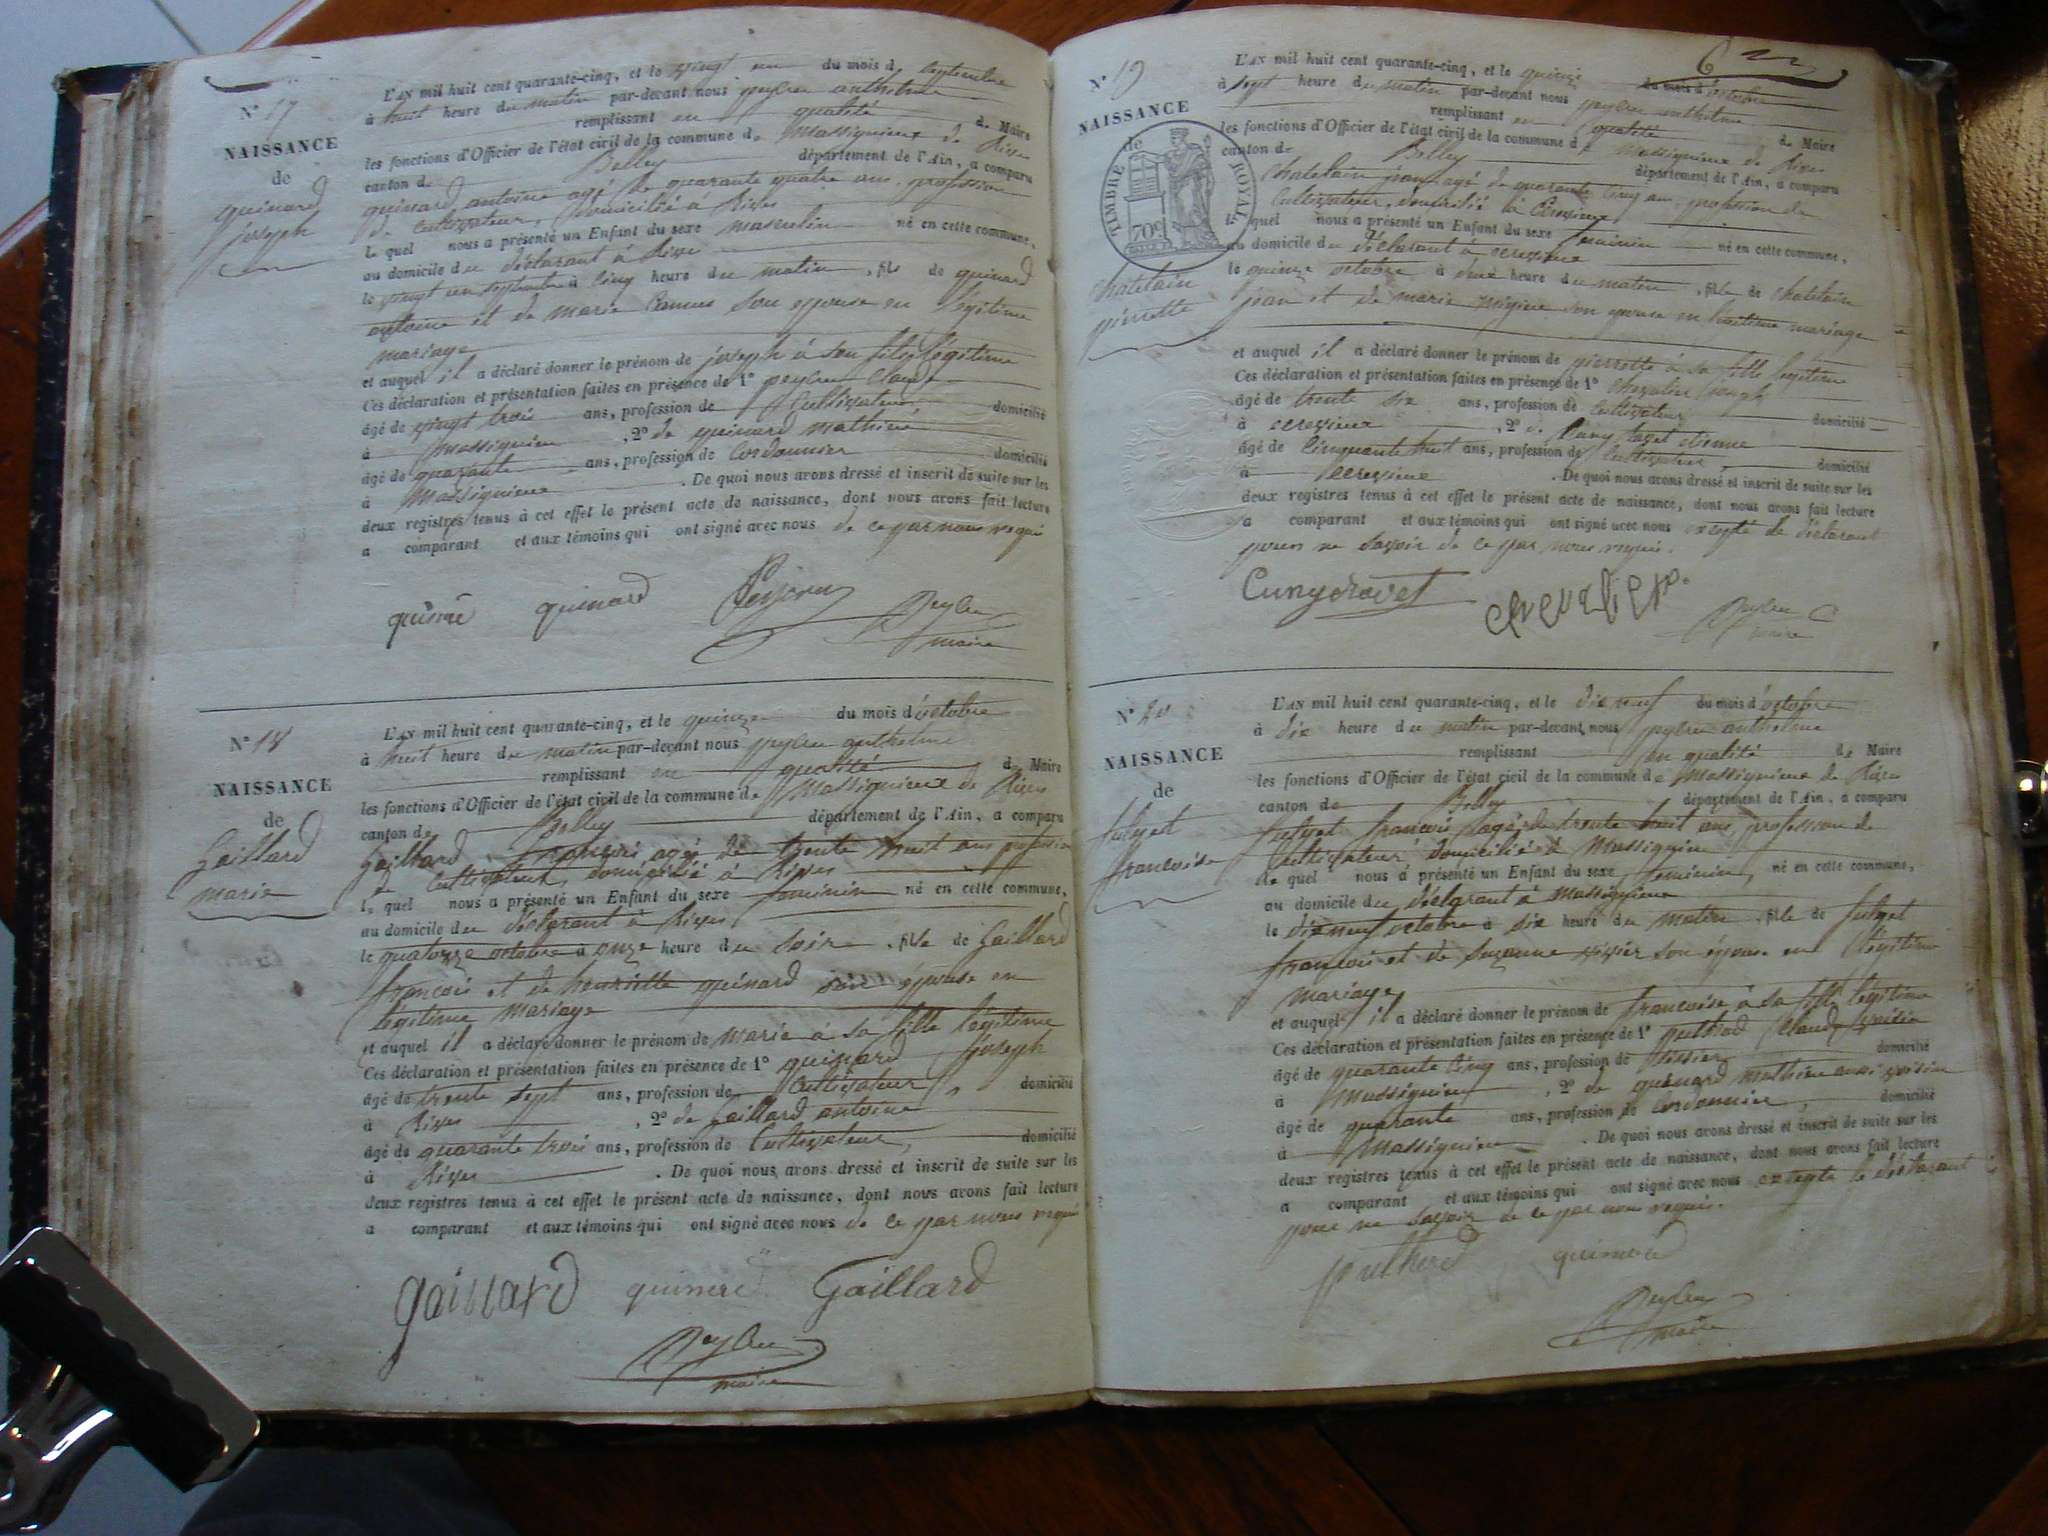 N° 17
NAISSANCE
de
quinard
joseph
L'AN mil huit cent quarante-cinq, et le vingt un du mois de septembre
à huit heure du matin par-devant nous peyleu anthelme
remplissant en qualité de Maire
les fonctions d'Officier de l'état civil de la commune de Massignieux de Rives
canton de Belley département de l'Ain, a comparu
quinard antoine agé de quarante quatre ans, profession
de cultivateur, domicilié à Rives
le quel nous a présenté un Enfant du sexe masculin né en cette commune,
au domicile du déclarant à Rives
le vingt un septembre à cinq heure du matin, fils de quinard
antoine et de marie Camus son epouse en légitime
mariage
et auquel il a déclaré donner le prénom de joseph à son fils légitime
Ces déclaration et présentation faites en présence de 1° peyleu Claude
âgé de vingt trois ans, profession de Cultivateur domicilié
à Massignieu, 2° de quinard mathieu
âgé de quarante ans, profession de Cordonnier domicilié
à Massignieux. De quoi nous avons dressé et inscrit de suite sur les
deux registres tenus à cet effet le présent acte de naissance, dont nous avons fait lecture
a comparant et aux témoins qui ont signé avec nous de ce par nous requi
quinard Peyleu
maire
N° 18
NAISSANCE
de
Gaillard
marie
L'AN mil huit cent quarante-cinq, et le quinze du mois d'octobre
à huit heure du matin par-devant nous peyleu anthelme
remplissant en qualité de Maire
les fonctions d'Officier de l'état civil de la commune de Massignieux de Rives
canton de Belley département de l'Ain, a comparu
Gaillard françois agé de trente huit ans profession
de Cultivateur, domicilié à Rives
le quel nous a présenté un Enfant du sexe feminin né en cette commune,
au domicile du déclarant à Rives
le quatorze octobre à onze heure du soir, fille de Gaillard
françois et de henriette quinard son epouse en
légitime mariage
et auquel il a déclaré donner le prénom de marie à sa fille légitime
Ces déclaration et présentation faites en présence de 1° quinard joseph
âgé de trente sept ans, profession de Cultivateur domicilié
à Rives, 2° de Gaillard antoine
âgé de quarante trois ans, profession de Cultivateur, domicilié
à Rives. De quoi nous avons dressé et inscrit de suite sur les
deux registres tenus à cet effet le présent acte de naissance, dont nous avons fait lecture
a comparant et aux témoins qui ont signé avec nous de ce par nous requi
gaillard quinerd Gaillard
Peyleu
maire
N° 19
NAISSANCE
de
TIMBRE ROYAL
chatelain
pierrette
L'AN mil huit cent quarante-cinq, et le quinze du mois d'octobre
à sept heure du matin par-devant nous peyleu anthelme
remplissant en qualité de Maire
les fonctions d'Officier de l'état civil de la commune de Massignieux de Rives
canton de Belley département de l'Ain, a comparu
Chatelain jean agé de quarante cinq ans, profession de
Cultivateur, domicilié à
le quel nous a présenté un Enfant du sexe feminin né en cette commune,
au domicile du déclarant à
le quinze octobre à deux heure du matin, fille de chatelain
jean et de marie son epouse en légitime mariage
et auquel il a déclaré donner le prénom de pierrette à sa fille légitime
Ces déclaration et présentation faites en présence de 1° joseph
âgé de trente six ans, profession de Cultivateur domicilié
à , 2° de Cuny etienne
âgé de Cinquante huit ans, profession de Cultivateur domicilié
à . De quoi nous avons dressé et inscrit de suite sur les
deux registres tenus à cet effet le présent acte de naissance, dont nous avons fait lecture
a comparant et aux témoins qui ont signé avec nous excepté le déclarant
pour ne savoir de ce par nous requis.
Peyleu
maire
N° 20
NAISSANCE
de
fulget
francoise
L'AN mil huit cent quarante-cinq, et le dix neuf du mois d'octobre
à dix heure du matin par-devant nous peyleu anthelme
remplissant en qualité de Maire
les fonctions d'Officier de l'état civil de la commune de Massignieux de Rives
canton de Belley département de l'Ain, a comparu
fulget françois agé de trente huit ans, profession de
Cultivateur domicilié à Massignieu
le quel nous a présenté un Enfant du sexe feminin, né en cette commune,
au domicile du déclarant à Massignieux
le dix neuf octobre à six heure du matin, fille de fulget
françois et de Suzanne son épouse en légitime
mariage
et auquel il a déclaré donner le prénom de francoise à sa fille légitime
Ces déclaration et présentation faites en présence de 1° Claude voisin
âgé de quarante cinq ans, profession de tissier domicilié
à Massignieu, 2° de quinard mathieu aussi voisin
âgé de quarante ans, profession de Cordonnier, domicilié
à Massignieu. De quoi nous avons dressé et inscrit de suite sur les
deux registres tenus à cet effet le présent acte de naissance, dont nous avons fait lecture
a comparant et aux témoins qui ont signé avec nous excepté le déclarant
pour ne savoir de ce par nous requis.
quinard
Peyleu
maire